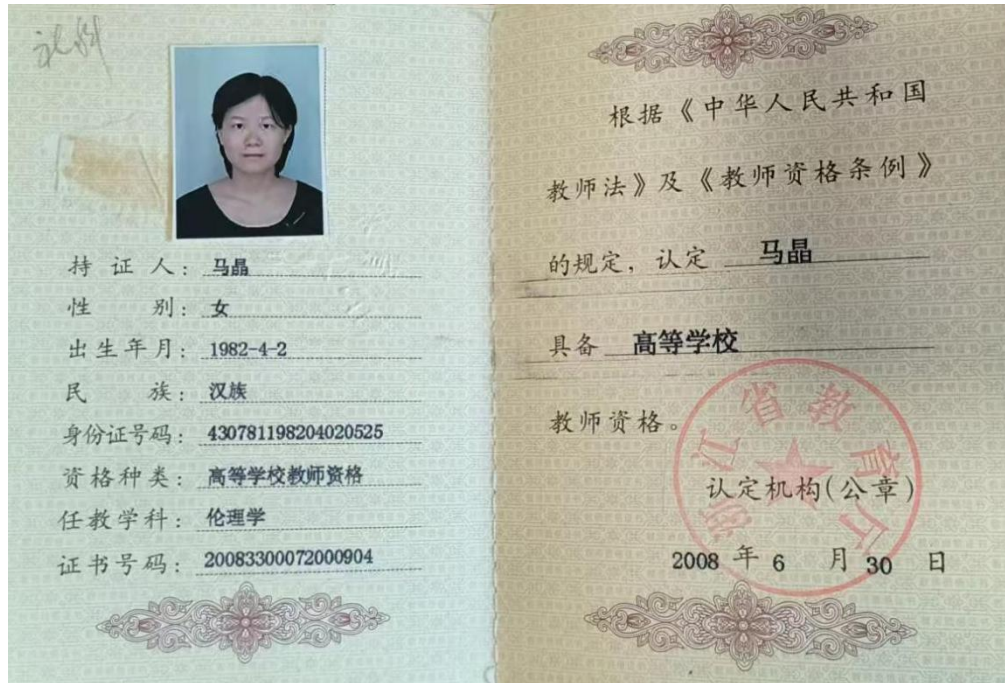 持证人：马晶
性别：女
出生年月：1982-4-2
民族：汉族
身份证号码：430781198204020525
资格种类：高等学校教师资格
任教学科：伦理学
证书号码：20083300072000904
根据《中华人民共和国
教师法》及《教师资格条例》
的规定，认定 马晶
具备 高等学校
教师资格。
浙江省教育厅
认定机构(公章)
2008 年 6 月 30 日